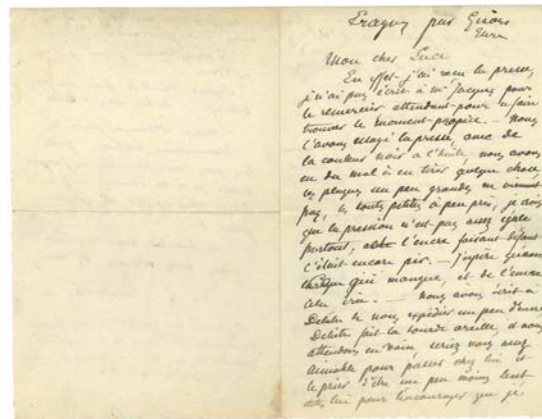 Eragny par Gisors
Eure
Mon cher Luce
En effet j'ai reçu la presse,
je n'ai pas écrit à Mr Jacques pour
le remercier attendant pour le faire
trouver le moment propice. — Nous
l'avons essayé la presse, avec de
la couleur noir à l'huile, nous avons
eu du mal à en tirer quelque chose,
les plaques un peu grandes ne viennent
pas, les toutes petites à peu près, je crois
que la pression n'est pas assez égale
partout, l'encre faisant défaut
c'était encore pis. — J'espère qu'avec
qui manque, et de l'encre
cela ira. — Nous avons écrit à
Delâtre de nous expédier un peu d'encre
Delâtre fait la sourde oreille, et nous
attendons en vain, seriez vous assez
aimable pour passer chez lui et
le prier d'être un peu moins lent
lui pour l'encourager que je